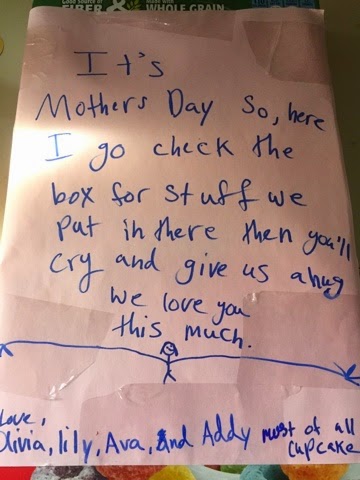 Good source of FIBER & Made with WHOLE GRAIN
It's
Mothers Day So, here
I go check the
box for stuff we
put in there then you'll
cry and give us a hug
we love you
this much.
Love,
Olivia, lily, Ava, And Addy most of all
cupcake